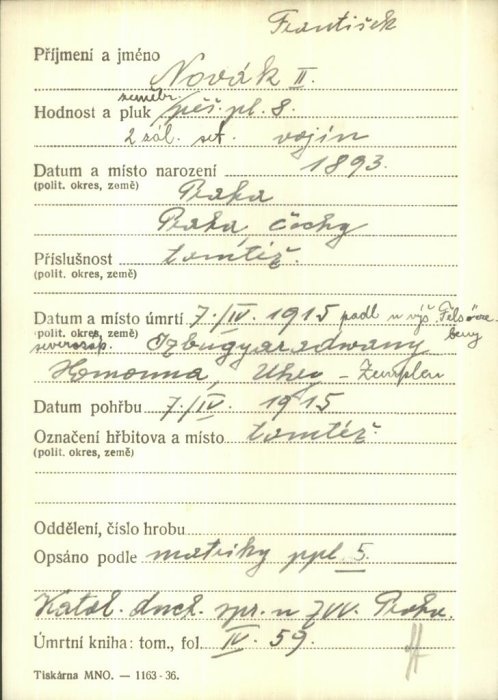 František
Příjmení a jméno
Novák II.
zeměbr.
Hodnost a pluk pěš. pl. 8.
2 zál. set. vojín
Datum a místo narození 1893.
(polit. okres, země)
Praha
Praha, Čechy
Příslušnost tamtéž.
(polit. okres, země)
Datum a místo úmrtí 7./IV. 1915 padl u výš.
(polit. okres, země)
severozáp. Izbugyaradvany
Homonna, Uhry – Zemplen
Datum pohřbu 7./IV. 1915
Označení hřbitova a místo tamtéž.
(polit. okres, země)
Oddělení, číslo hrobu
Opsáno podle matriky ppl. 5.
Katol. duch. spr. u ZVV. Praha.
Úmrtní kniha: tom., fol. IV. 59.
Tiskárna MNO. — 1163-36.